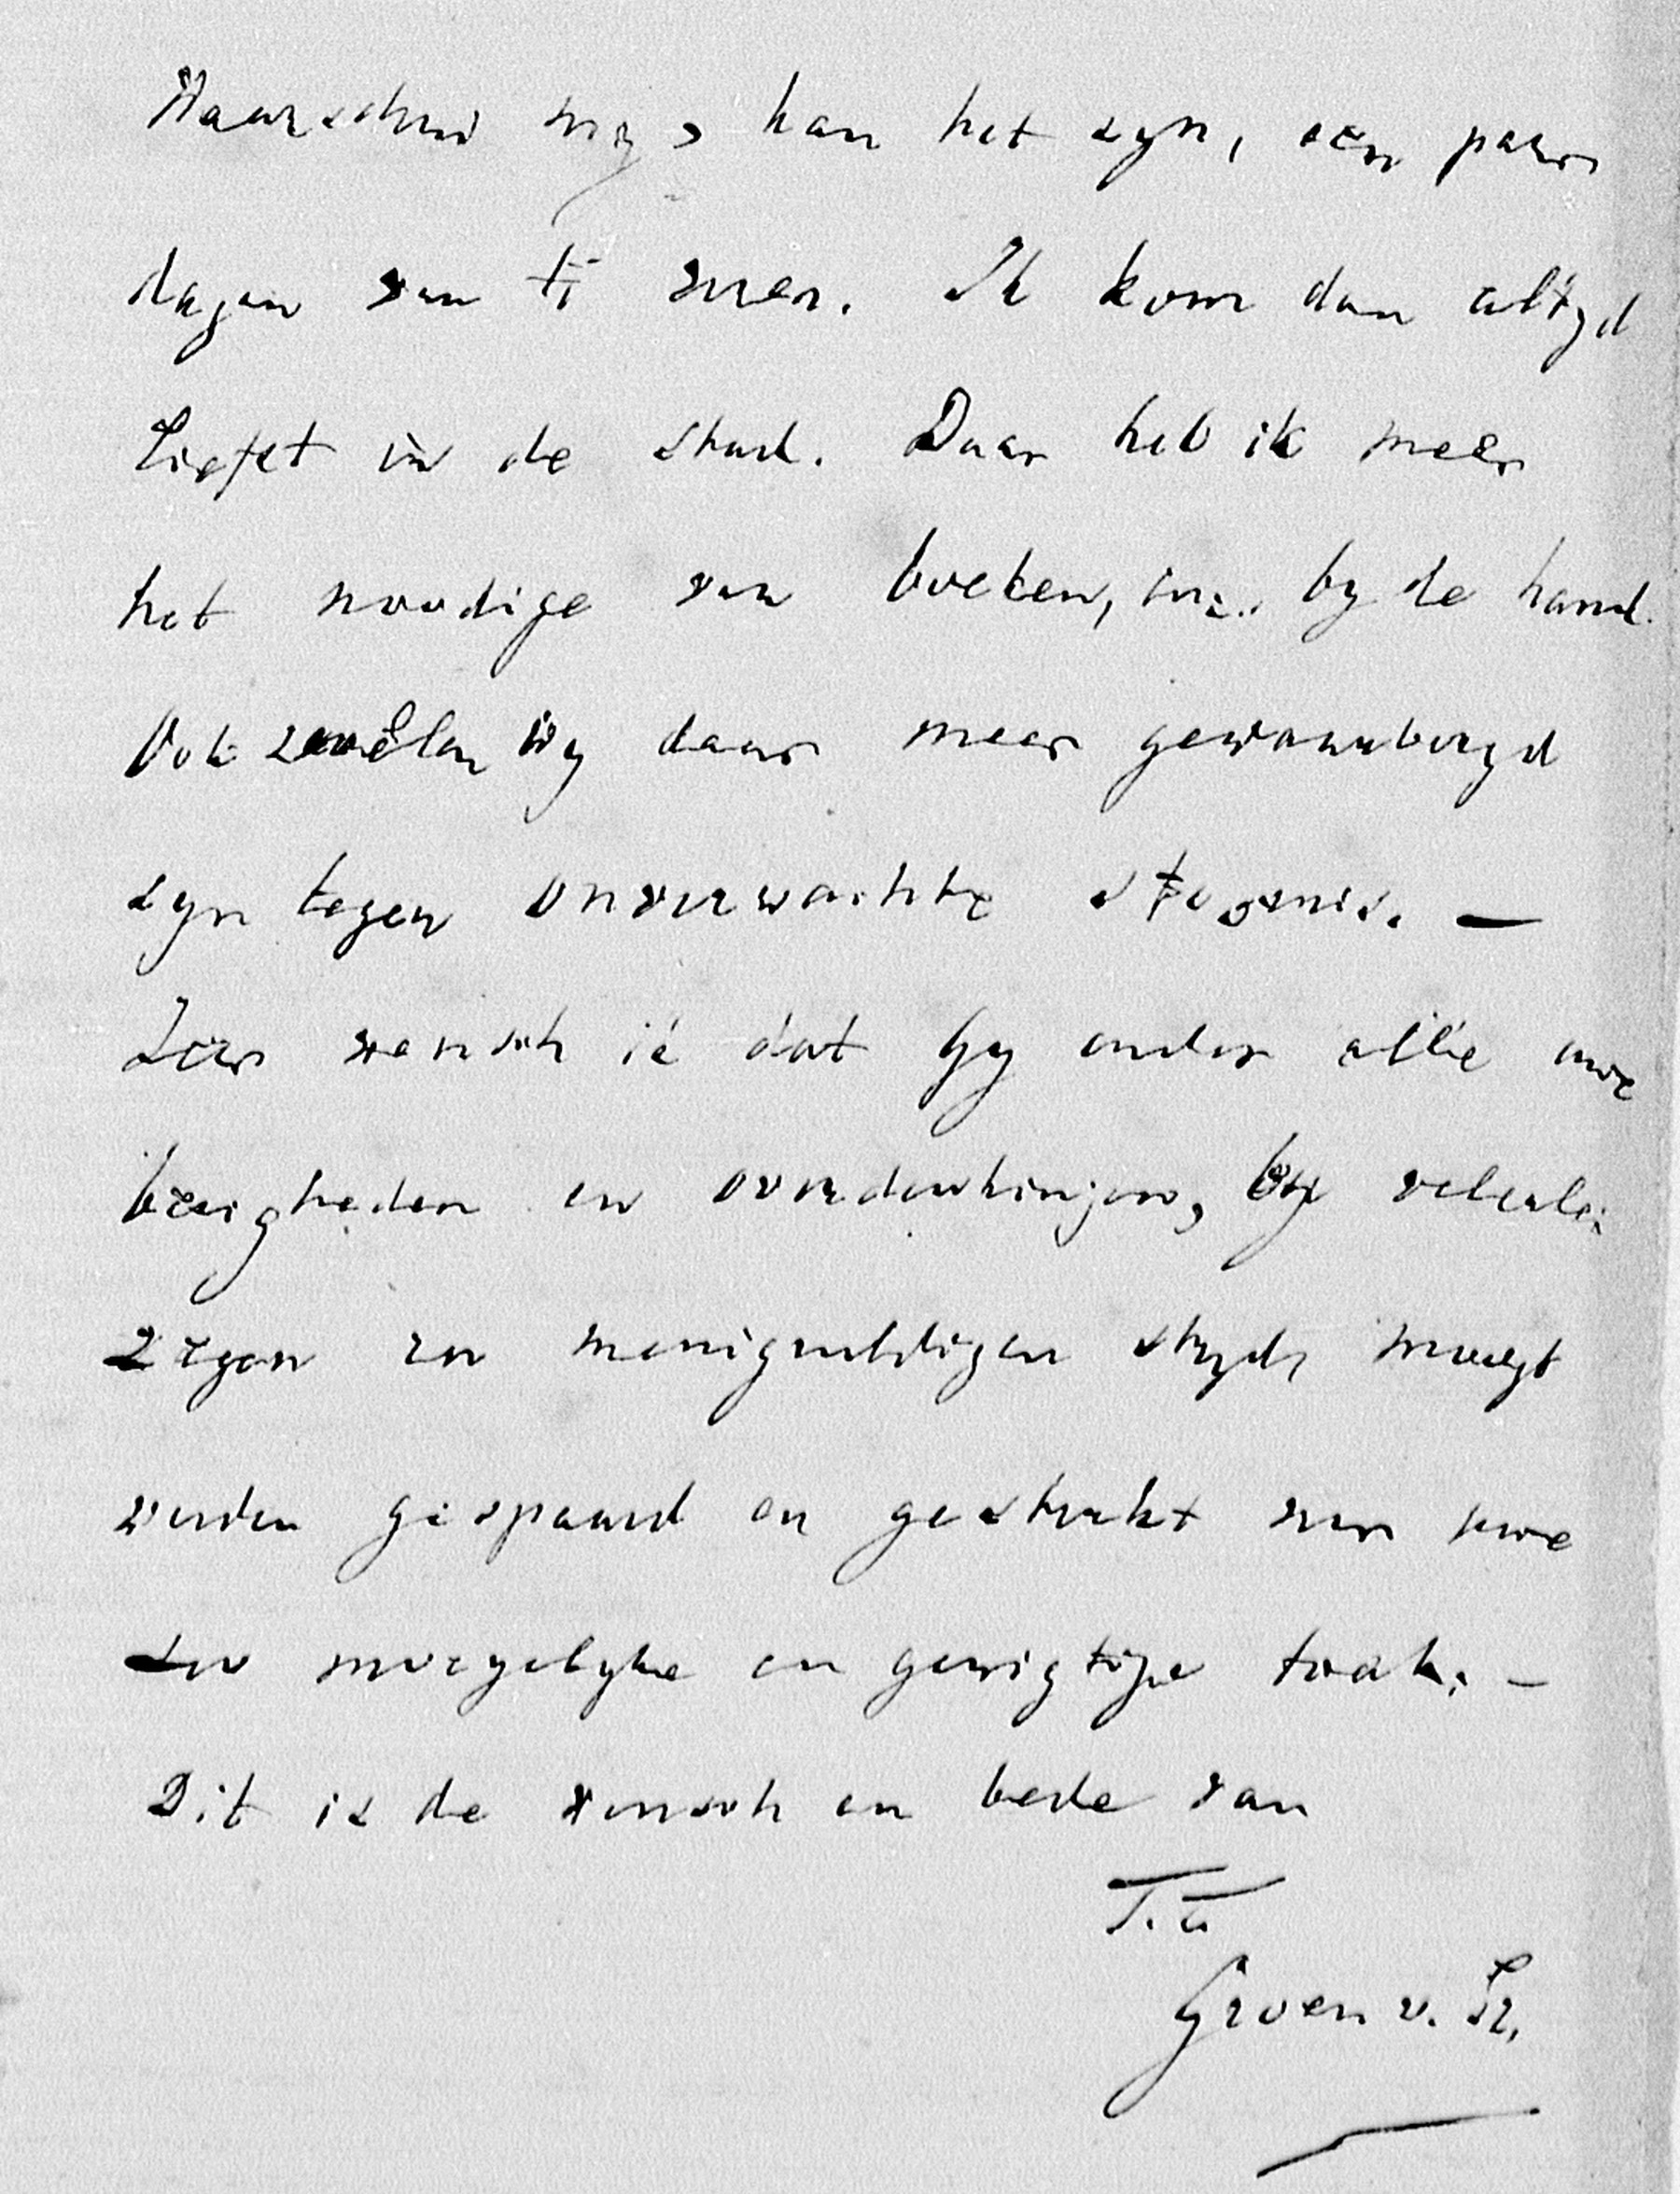 Waarschuw my, kan het zyn, een paar
dagen van te voren. Ik kom dan altyd
liefst in de stad. Daar heb ik meer
het noodige van boeken, enz. by de hand.
Ook zoudèn wy daar meer gewaarborgd
zyn tegen onverwachte stoornis. —
Zeer wensch ik dat Gy onder alle uwe
bezigheden en overdenkingen, by velerlei
zegen en menigvuldigen stryd, moogt
worden gespaard en gesterkt voor uwe
zoo moeyelyke en gewigtige taak. —
Dit is de wensch en bede van
T.T.
Groen v. Pr.